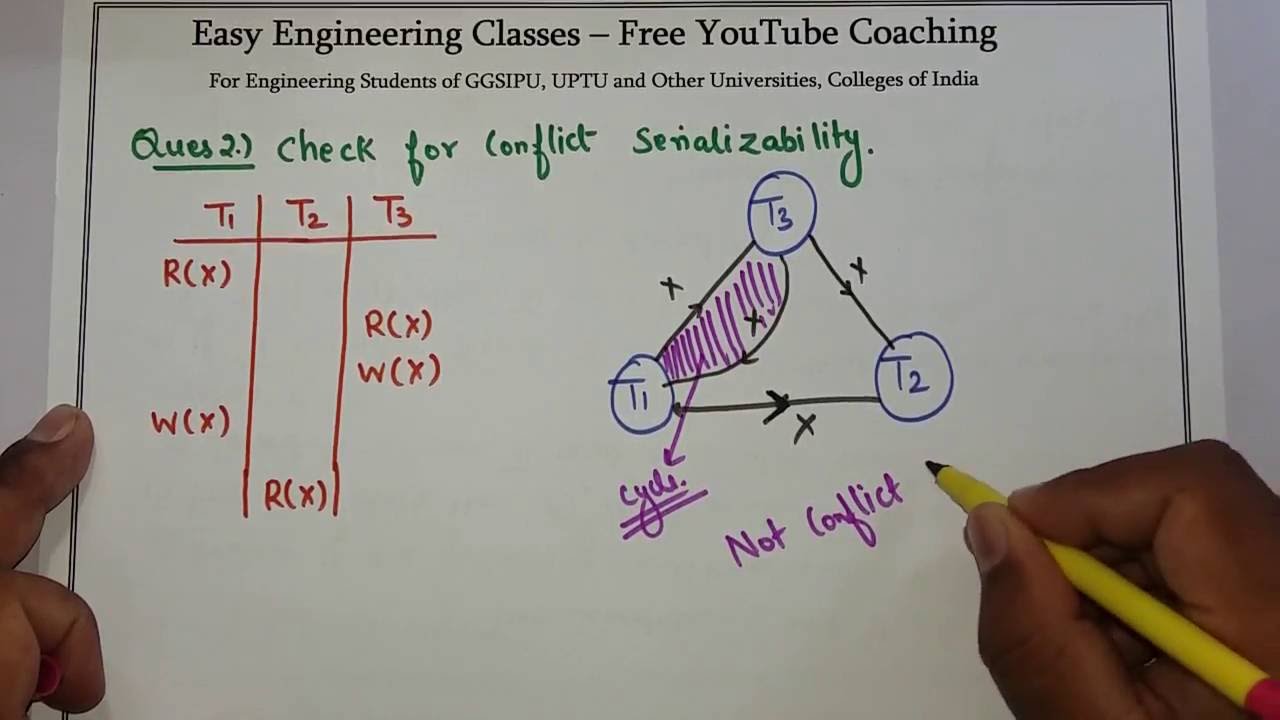 Easy Engineering Classes – Free YouTube Coaching
For Engineering Students of GGSIPU, UPTU and Other Universities, Colleges of India
Ques 2.) Check for Conflict Serializability.
T1 T2 T3
R(X)
R(X)
W(X)
W(X)
R(X)
T3
X
X
X
T1
T2
X
cycle.
Not Conflict